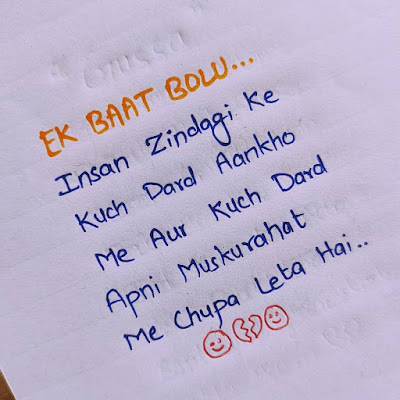 EK BAAT BOLU...
Insan Zindagi Ke
Kuch Dard Aankho
Me Aur Kuch Dard
Apni Muskurahat
Me Chupa Leta Hai..